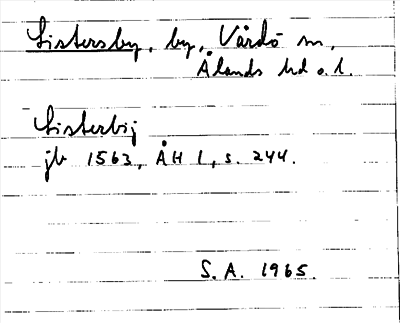 Listersby, by, Vårdö sn,
Ålands hd o. l.
Listerbij
jb 1563, ÅH 1, s. 244.
S. A. 1965.